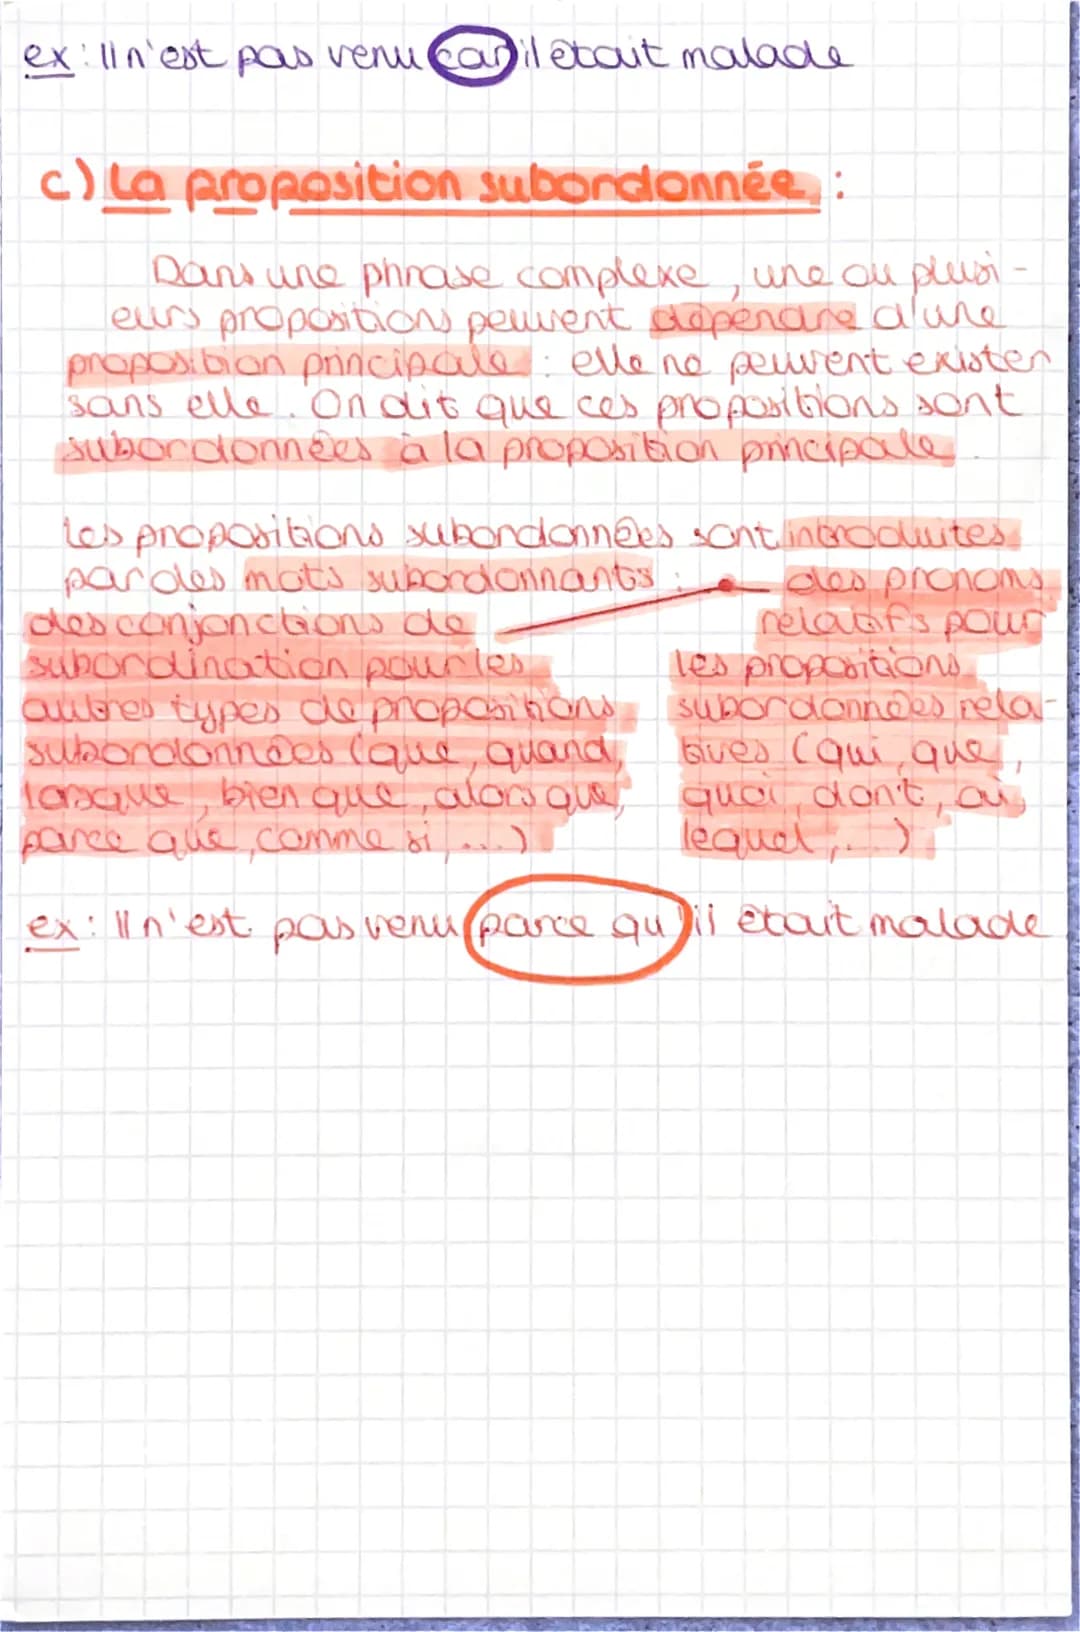 ex : Il n'est pas venu car il était malade
c) La proposition subordonnée :
Dans une phrase complexe, une ou plusi-
eurs propositions peuvent dépendre d'une
proposition principale : elle ne peuvent exister
sans elle. On dit que ces propositions sont
subordonnées à la proposition principale.
Les propositions subordonnées sont introduites
par des mots subordonnants :
des conjonctions de
subordination pour les
autres types de propositions
subordonnées (que, quand,
lorsque, bien que, alors que,
parce que, comme si, ...)
des pronoms
relatifs pour
les propositions
subordonnées rela-
tives (qui, que,
quoi, don't, où,
lequel, ...)
ex : Il n'est pas venu parce qu'il était malade